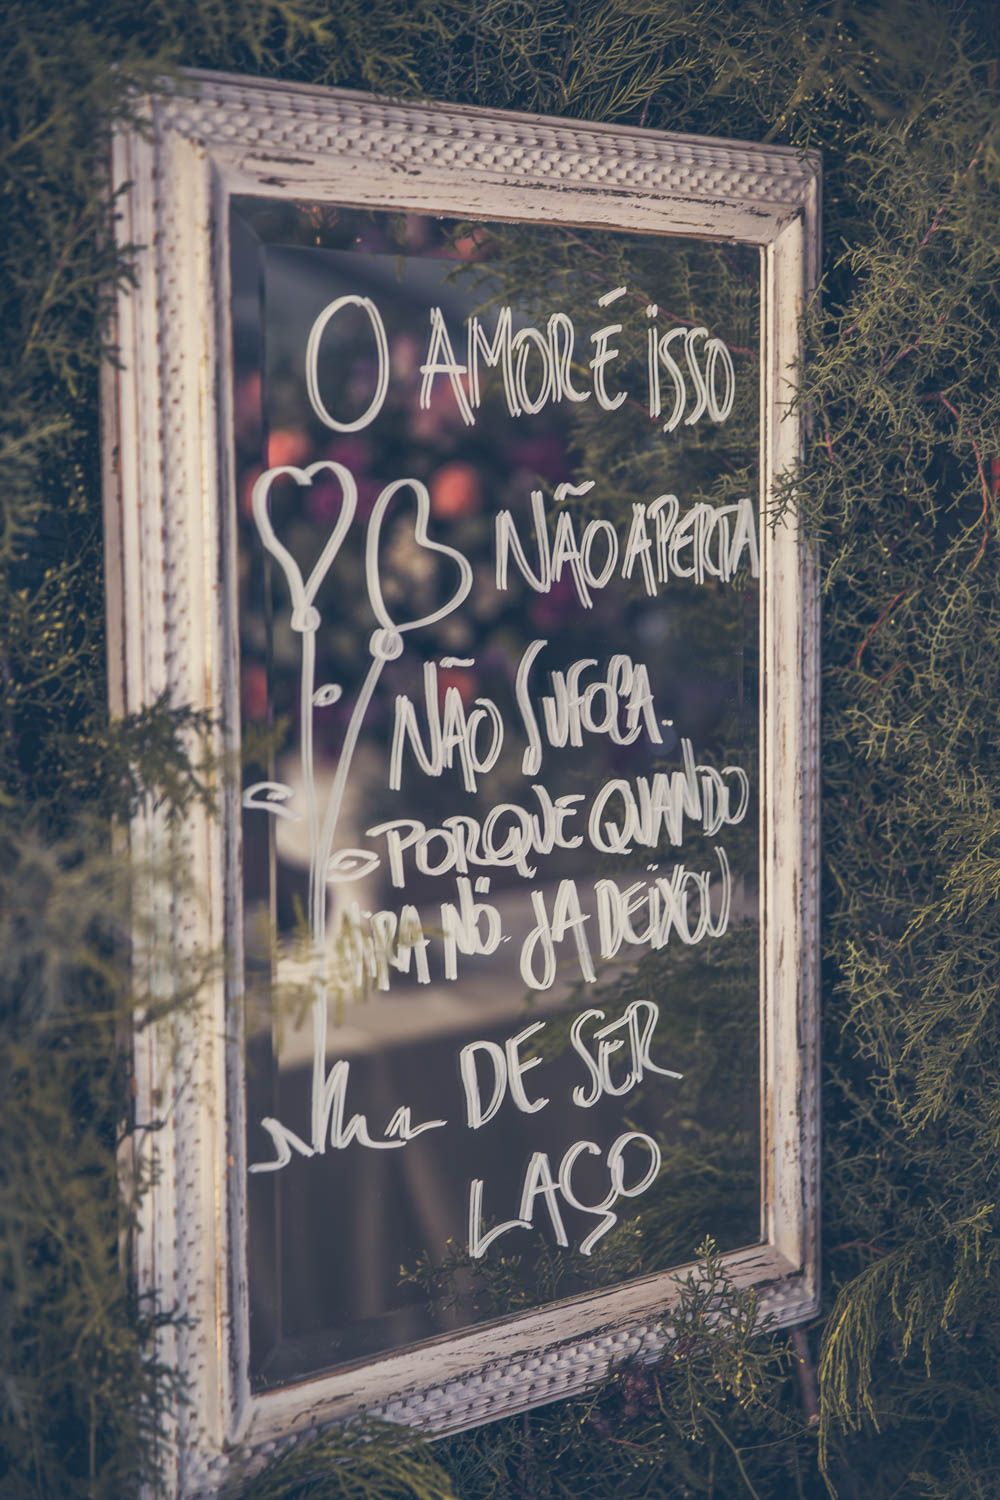 O AMOR É ISSO
NÃO APERTA
NÃO SUFOCA.
PORQUE QUANDO
VIRA NÓ. JÁ DEIXOU
DE SER
LAÇO